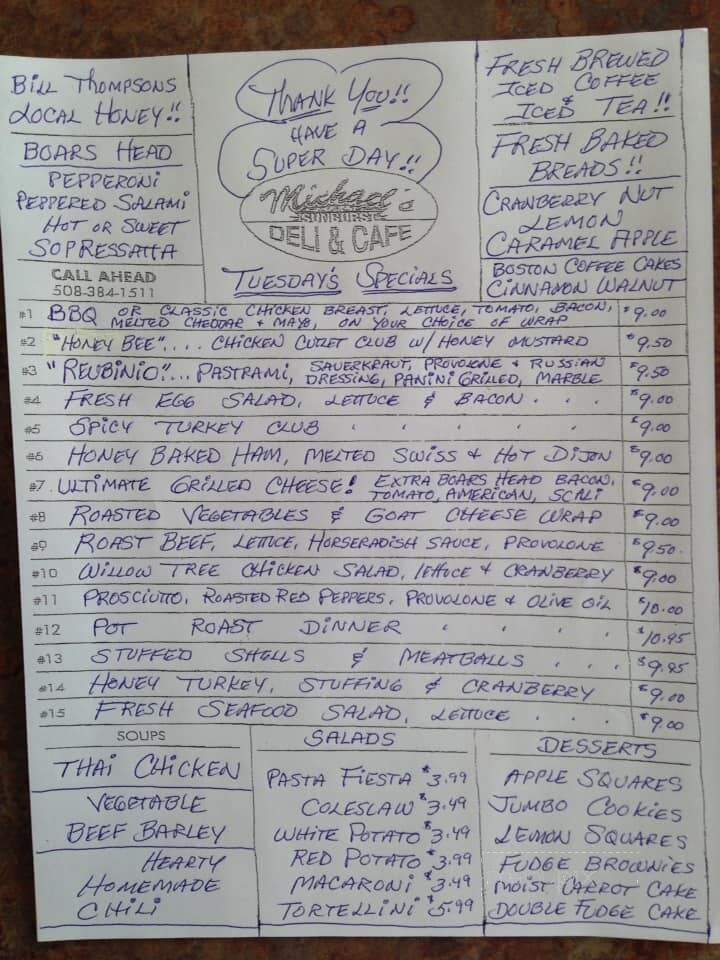 BILL THOMPSONS
LOCAL HONEY!!
BOARS HEAD
PEPPERONI
PEPPERED SALAMI
HOT OR SWEET
SOPRESSATTA
CALL AHEAD
508-384-1511
THANK YOU!!
HAVE A
SUPER DAY!!
Michael's
SUNBURST
DELI & CAFE
TUESDAY'S SPECIALS
FRESH BREWED
ICED COFFEE
&
ICED TEA!!
FRESH BAKED
BREADS!!
CRANBERRY NUT
LEMON
CARAMEL APPLE
BOSTON COFFEE CAKES
CINNAMON WALNUT
#1 BBQ OR CLASSIC CHICKEN BREAST, LETTUCE, TOMATO, BACON,
MELTED CHEDDAR + MAYO, ON YOUR CHOICE OF WRAP $9.00
#2 "HONEY BEE".... CHICKEN CUTLET CLUB W/ HONEY MUSTARD $9.50
#3 "REUBINIO"... PASTRAMI, SAUERKRAUT, PROVOLONE + RUSSIAN
DRESSING, PANINI GRILLED, MARBLE $9.50
#4 FRESH EGG SALAD, LETTUCE & BACON . . . $9.00
#5 SPICY TURKEY CLUB . . . . . $9.00
#6 HONEY BAKED HAM, MELTED SWISS & HOT DIJON $9.00
#7 ULTIMATE GRILLED CHEESE! EXTRA BOARS HEAD BACON,
TOMATO, AMERICAN, SCALI $9.00
#8 ROASTED VEGETABLES & GOAT CHEESE WRAP $9.00
#9 ROAST BEEF, LETTUCE, HORSERADISH SAUCE, PROVOLONE $9.50
#10 WILLOW TREE CHICKEN SALAD, LETTUCE + CRANBERRY $9.00
#11 PROSCIUTTO, ROASTED RED PEPPERS, PROVOLONE & OLIVE OIL $10.00
#12 POT ROAST DINNER . . . . $10.95
#13 STUFFED SHELLS & MEATBALLS . . . $9.95
#14 HONEY TURKEY, STUFFING & CRANBERRY $9.00
#15 FRESH SEAFOOD SALAD, LETTUCE . . . $9.00
SOUPS
THAI CHICKEN
VEGETABLE
BEEF BARLEY
HEARTY
HOMEMADE
CHILI
SALADS
PASTA FIESTA $3.99
COLESLAW $3.49
WHITE POTATO $3.49
RED POTATO $3.99
MACARONI $3.49
TORTELLINI $5.99
DESSERTS
APPLE SQUARES
JUMBO COOKIES
LEMON SQUARES
FUDGE BROWNIES
MOIST CARROT CAKE
DOUBLE FUDGE CAKE